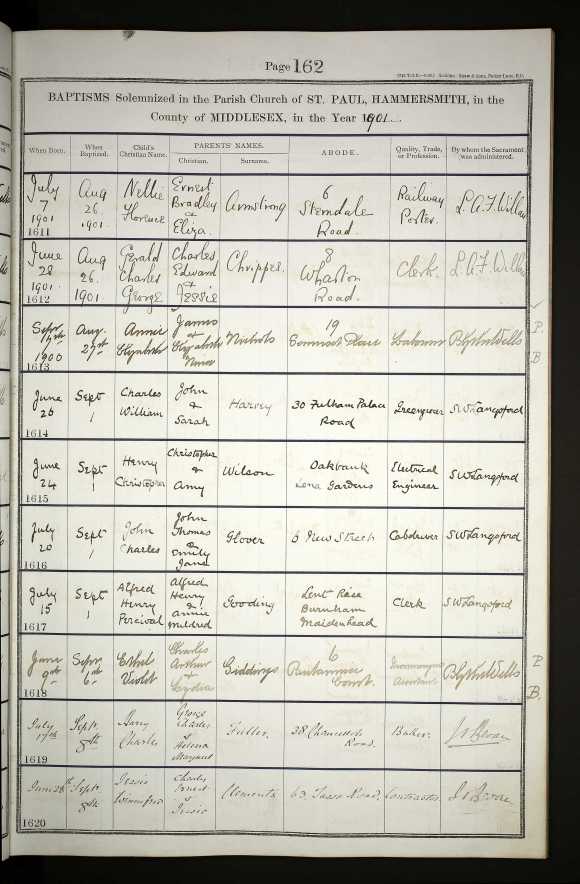 Page 162
BAPTISMS Solemnized in the Parish Church of ST. PAUL, HAMMERSMITH, in the
County of MIDDLESEX, in the Year 1901
When Born. When Baptized. Child's Christian Name. PARENTS' NAMES. Christian. Surname. ABODE. Quality, Trade, or Profession. By whom the Sacrament was administered.
July 7 1901 Aug 26. 1901. Nellie Florence Ernest Bradley & Eliza. Armstrong 6 Sterndale Road. Railway Porter. L.A.F.
1611
June 28 1901. Aug 26. 1901 Gerald Charles George Charles Edward & Jessie 8 Road. Clerk. L.A.F.
1612
Sepr 14th 1900 Aug. 27th Annie Elizabeth James & Elizabeth Nichols 19 Place Labourer Blyth Wells P. B.
1613
June 26 Sept 1 Charles William John & Sarah Harvey 30 Fulham Palace Road Greengrocer SW Langsford
1614
June 24 Sept 1 Henry Christopher Christopher & Amy Wilson Oakbank Lena Gardens Electrical Engineer SW Langsford
1615
July 20 Sept 1 John Charles John Thomas & Emily Jane Glover 6 New Street Cabdriver SW Langsford
1616
July 15 Sept 1 Alfred Henry Percival Alfred Henry & Annie Mildred Gooding Lent Rise Burnham Maidenhead Clerk SW Langsford
1617
June 9th Sepr 6th Ethel Violet Charles Arthur & Lydia Giddings 6 Court. Blyth Wells P. B.
1618
July 17th Sept. 8th Harry Charles George Charles & Helena Margaret Fuller. 38 Chancellor's Road. Baker.
1619
June 28th Sept. 8th Jessie Winnifred Charles Ernest & Jessie Clements 63, Road. Contractor.
1620